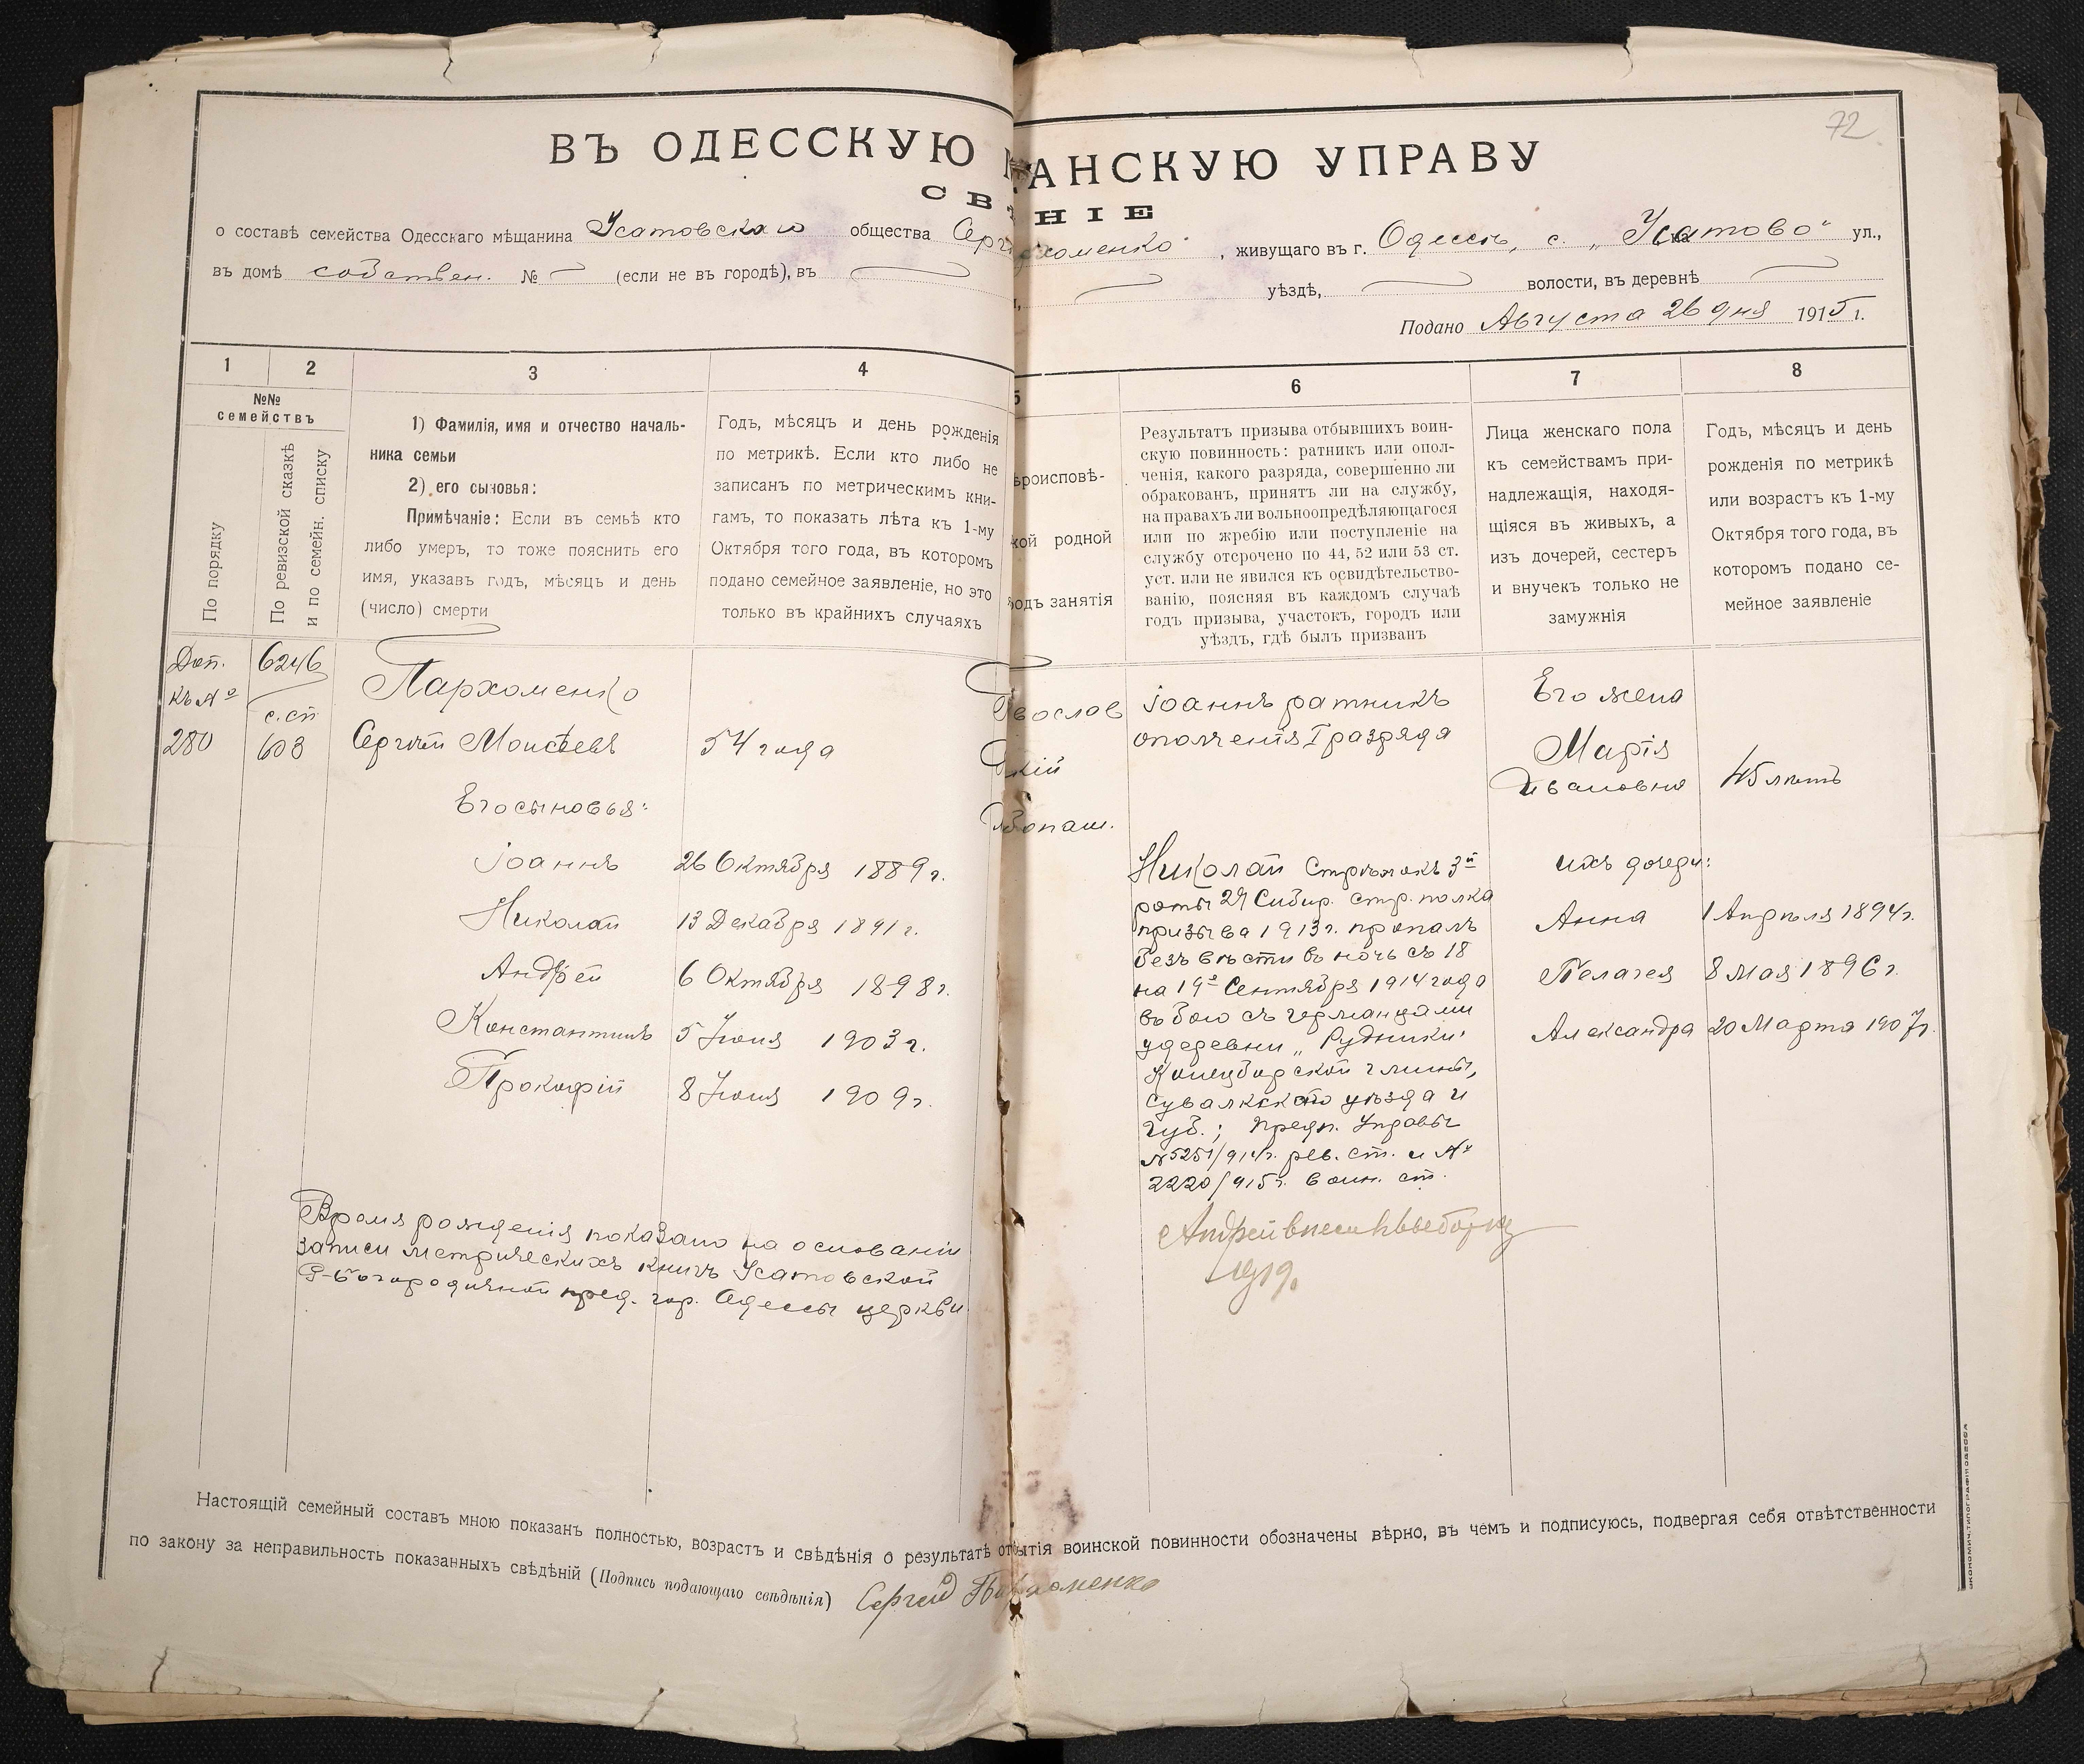 72
ВЪ ОДЕССКУЮ АНСКУЮ УПРАВУ
СВ НІЕ
о составѣ семейства Одесскаго мѣщанина Усатовскаго общества Серг хоменко, живущаго въ г. Одессѣ, с. „Усатово" на ул.,
въ домѣ собствен. № (если не въ городѣ), въ уѣздѣ, волости, въ деревнѣ
Подано Августа 26 дня 1915 г.
1 2 3 4 5 6 7 8
№№
семействъ
По порядку
По ревизской сказкѣ
и по семейн. списку
1) Фамилія, имя и отчество началь-
ника семьи
2) его сыновья:
Примѣчаніе: Если въ семьѣ кто
либо умеръ, то тоже пояснить его
имя, указавъ годъ, мѣсяцъ и день
(число) смерти
Годъ, мѣсяцъ и день рожденія
по метрикѣ. Если кто либо не
записанъ по метрическимъ кни-
гамъ, то показать лѣта къ 1-му
Октября того года, въ которомъ
подано семейное заявленіе, но это
только въ крайнихъ случаяхъ
ѣроисповѣ-
кой родной
родъ занятія
Результатъ призыва отбывшихъ воин-
скую повинность: ратникъ или опол-
ченія, какого разряда, совершенно ли
обракованъ, принятъ ли на службу,
на правахъ ли вольноопредѣляющагося
или по жребію или поступленіе на
службу отсрочено по 44, 52 или 53 ст.
уст. или не явился къ освидѣтельство-
ванію, поясняя въ каждомъ случаѣ
годъ призыва, участокъ, городъ или
уѣздъ, гдѣ былъ призванъ
Лица женскаго пола
къ семействамъ при-
надлежащія, находя-
щіяся въ живыхъ, а
изъ дочерей, сестеръ
и внучекъ только не
замужнія
Годъ, мѣсяцъ и день
рожденія по метрикѣ
или возрастъ къ 1-му
Октября того года, въ
которомъ подано се-
мейное заявленіе
Доп.
къ №
280
6246
с. сп
603
Пархоменко
Сергѣй Моисѣевъ 54 года
Его сыновья:
Іоаннъ 26 Октября 1889 г.
Николай 13 Декабря 1891 г.
Андрей 6 Октября 1898 г.
Константинъ 5 Іюня 1903 г.
Прокофій 8 Іюля 1909 г.
Время рожденія показано на основаніи
записи метрическихъ книгъ Усатовской
Р-Богородичной пред. гор. Одессы церкви
вослав
кій
бопаш.
Іоаннъ ратникъ
ополченія I разряда
Николай Стрѣлокъ 3й
роты 24 Сибир. стр. полка
призыва 1913 г. пропалъ
безъ вѣсти въ ночь съ 18
на 19е Сентября 1914 года
въ бою съ германцами
у деревни „Рудники"
Конецборской гмины,
Сувалкскаго уѣзда и
губ.; Предп. Управы
№ 5251/914 г. рев. ст. и №
2220/915 г. воин. ст.
Андрей внесенъ въ выборку
1919.
Его жена
Марія
Ивановна 45 лѣтъ
ихъ дочери:
Анна 1 Апрѣля 1894 г.
Пелагея 8 Мая 1896 г.
Александра 20 Марта 1907 г.
Настоящій семейный составъ мною показанъ полностью, возрастъ и свѣдѣнія о результатѣ отбытія воинской повинности обозначены вѣрно, въ чемъ и подписуюсь, подвергая себя отвѣтственности
по закону за неправильность показанныхъ свѣдѣній (Подпись подающаго свѣдѣнія) Сергей Пархоменко
ЭКОНОМИЧ. ТИПОГРАФІЯ ОДЕССА